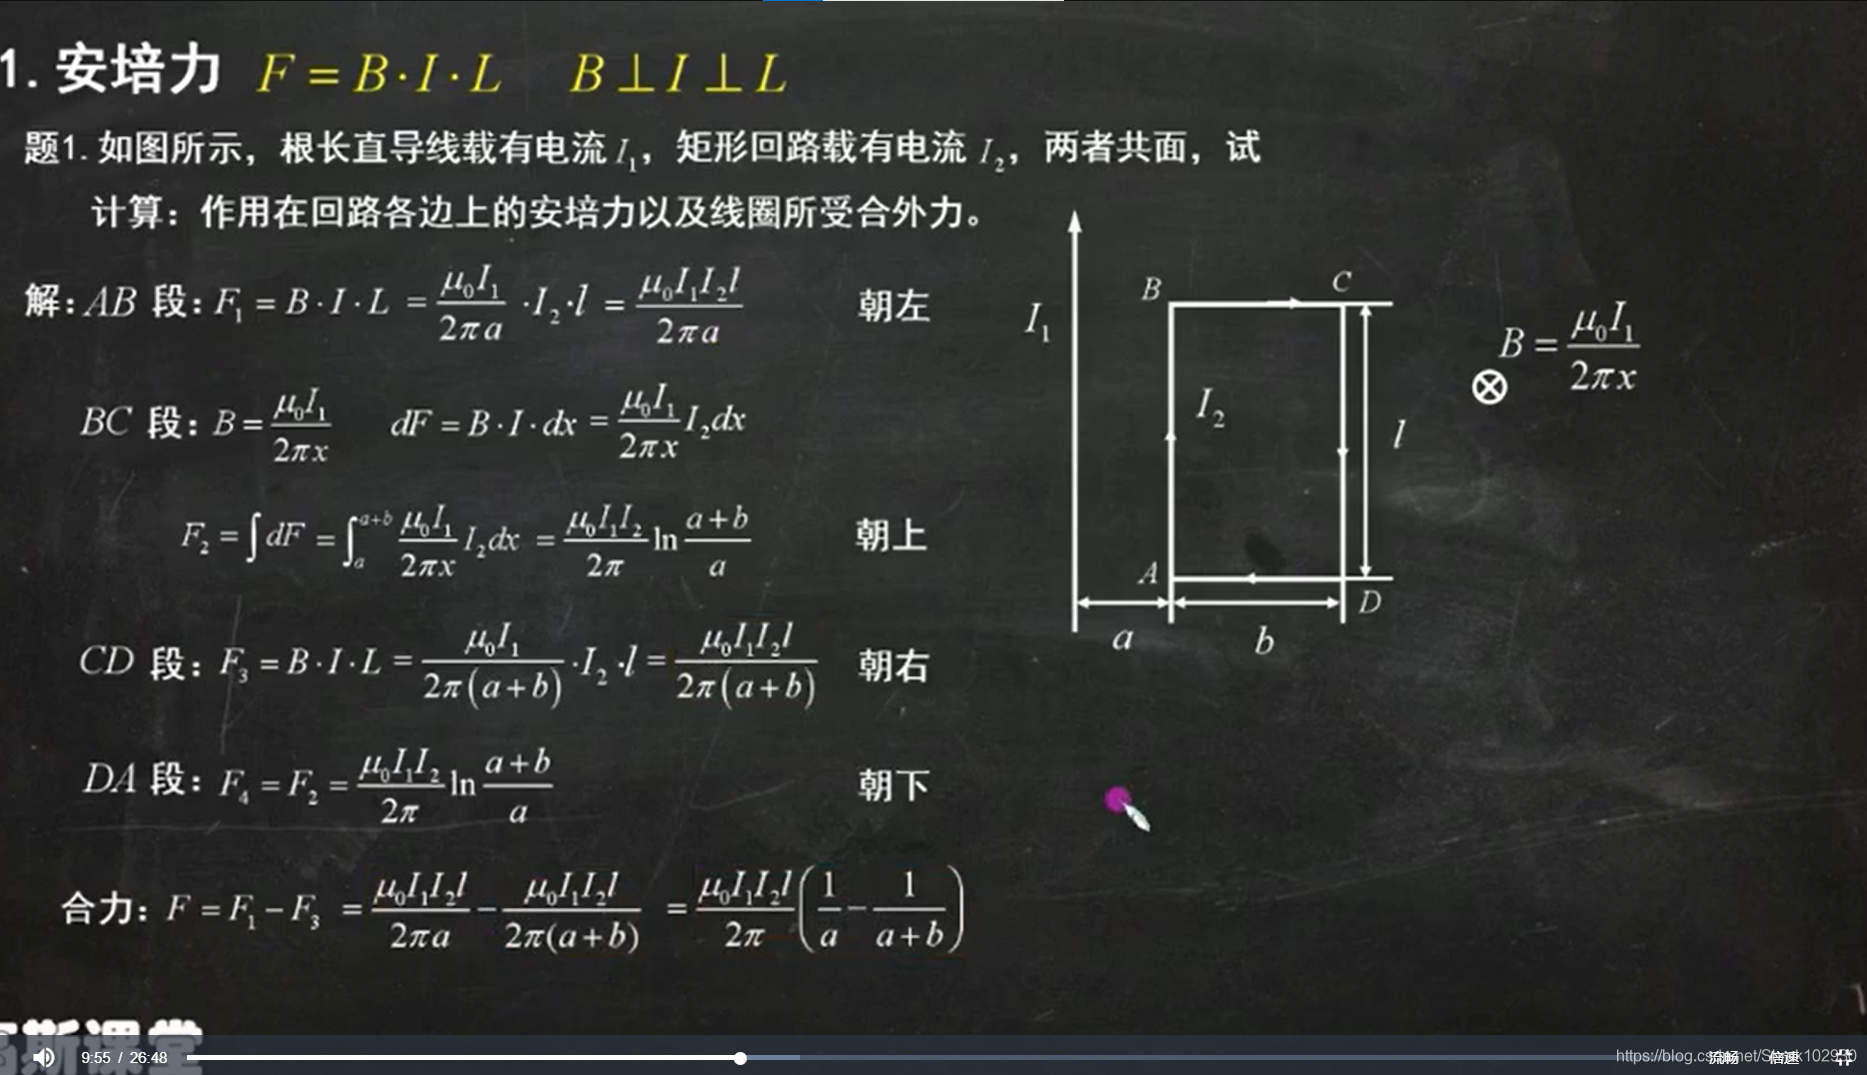 1. 安培力 F = B·I·L B⊥I⊥L
题1. 如图所示，根长直导线载有电流 I₁，矩形回路载有电流 I₂，两者共面，试
计算：作用在回路各边上的安培力以及线圈所受合外力。
解：AB 段：F₁ = B·I·L = μ₀I₁/(2πa) ·I₂·l = μ₀I₁I₂l/(2πa) 朝左
BC 段：B = μ₀I₁/(2πx) dF = B·I·dx = μ₀I₁/(2πx) I₂dx
F₂ = ∫dF = ∫ₐᵃ⁺ᵇ μ₀I₁/(2πx) I₂dx = μ₀I₁I₂/(2π) ln (a+b)/a 朝上
CD 段：F₃ = B·I·L = μ₀I₁/(2π(a+b)) ·I₂·l = μ₀I₁I₂l/(2π(a+b)) 朝右
DA 段：F₄ = F₂ = μ₀I₁I₂/(2π) ln (a+b)/a 朝下
合力：F = F₁ − F₃ = μ₀I₁I₂l/(2πa) − μ₀I₁I₂l/(2π(a+b)) = μ₀I₁I₂l/(2π) (1/a − 1/(a+b))
I₁
B
C
I₂
l
A
D
a
b
B = μ₀I₁/(2πx)
斯课堂
9:55 / 26:48
流畅
倍速